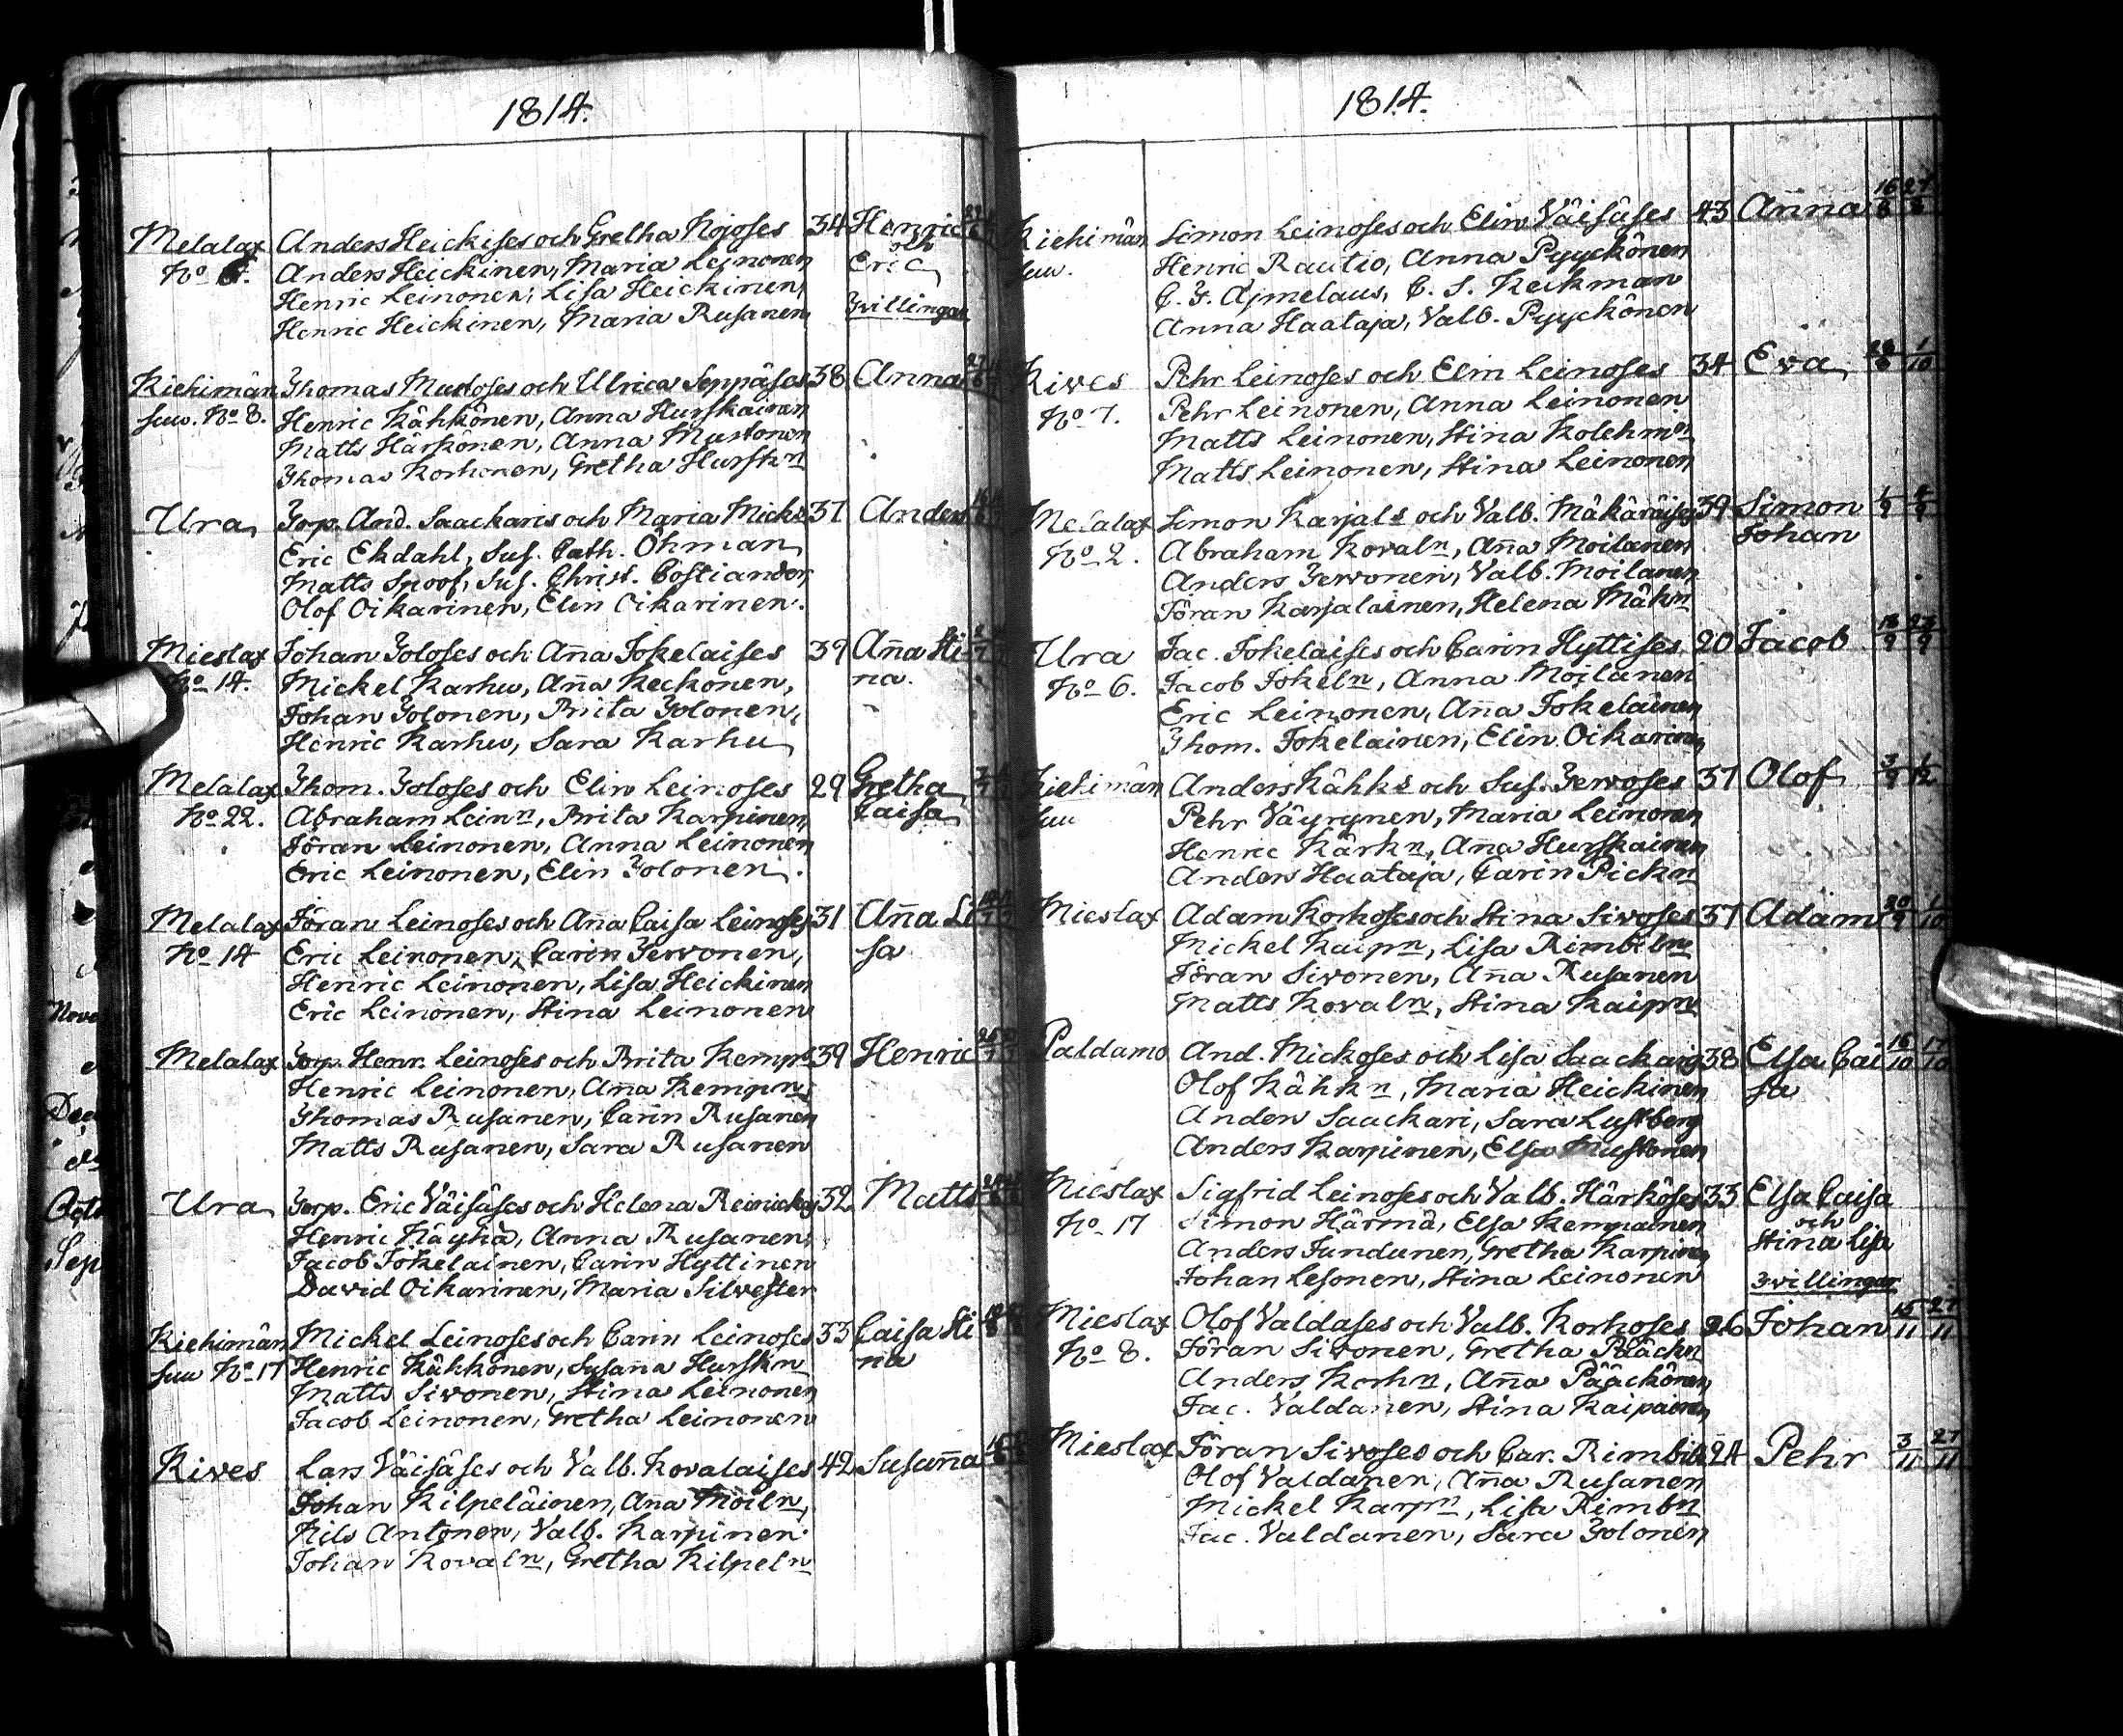 1814.
Melalax Anders Heickises och Gretha Kojoses 34 Henric
No Anders Heickinen, Maria Leinonen och Eric
Henric Leinonen, Lisa Heickinen,
Henric Heickinen, Maria Rusanen Zvillingar
Kiehimän Thomas Mustoses och Ulrica Seppäses 38 Anna
suu. No 8. Henric Kähkönen, Anna Hurskainen
Matts Härkönen, Anna Mustonen
Thomas Korhonen, Gretha Hurskn
Ura Torp. And. Saackaris och Maria Micks 37 Anders
Eric Ekdahl, Sus. Cath. Öhman
Matts Snoof, Sus. Christ. Costiander
Olof Oikarinen, Elin Oikarinen.
Mieslax Johan Toloses och Aña Jokelaises 39 Aña Sti
No 14. Mickel Karhu, Aña Keckonen, na.
Johan Tolonen, Brita Tolonen,
Henric Karhu, Sara Karhu
Melalax Thom. Toloses och Elin Leinoses 29 Gretha
No 22. Abraham Leinn, Brita Karpinen, Caisa
Jöran Leinonen, Anna Leinonen
Eric Leinonen, Elin Tolonen.
Melalax Jöran Leinoses och Aña Caisa Leinoses 31 Aña Li
No 14 Eric Leinonen, Carin Tervonen, sa
Henric Leinonen, Lisa Heickinen
Eric Leinonen, Stina Leinonen
Melalax Torp. Henr. Leinoses och Brita Kemps 39 Henric
Henric Leinonen, Aña Kempn
Thomas Rusanen, Carin Rusanen
Matts Rusanen, Sara Rusanen
Ura Torp. Eric Väisäses och Helena Reinickes 32 Matts
Henric Käyhä, Anna Rusanen,
Jacob Jokelainen, Carin Hyttinen
David Oikarinen, Maria Silvester
Kiehimän Mickel Leinoses och Carin Leinoses 33 Caisa Sti
suu No 17 Henric Kähkönen, Susaña Hurskn na
Matts Sivonen, Stina Leinonen
Jacob Leinonen, Gretha Leinonen
Kives Lars Väisäses och Valb. Kovalaises 42 Susaña
Johan Kilpeläinen, Aña Moiln,
Nils Antonen, Valb. Karpinen
Johan Kovaln, Gretha Kilpeln
1814.
Kiehimän Simon Leinoses och Elin Väisäses 43 Anna 16/8 27/8
suu. Henric Rautio, Anna Pyyckönen
C. F. Ajmelaus, C. S. Keckman
Anna Haataja, Valb. Pyyckönen
Kives Pehr Leinoses och Elin Leinoses 34 Eva 1/10
No 7. Pehr Leinonen, Anna Leinonen
Matts Leinonen, Stina Kolehmn
Matts Leinonen, Stina Leinonen
Melalax Simon Karjals och Valb. Mäkäräises 39 Simon 1/9
No 2. Abraham Kovaln, Aña Moilanen Johan
Anders Tervonen, Valb. Moilanen
Jöran Karjalainen, Helena Mäkn
Ura Jac. Jokelaises och Carin Hyttises 20 Jacob
No 6. Jacob Jokeln, Anna Moilanen
Eric Leinonen, Aña Jokelainen
Thom. Jokelainen, Elin Oikarinen
Kiehimän Anders Kähks och Sus. Tervoses 37 Olof
suu Pehr Väyrynen, Maria Leinonen
Henric Kärkn, Aña Hurskainen
Anders Haataja, Carin Pickn
Mieslax Adam Korhoses och Stina Sivoses 37 Adam 20/9 1/10
Mickel Kaipn, Lisa Rimbiln
Jöran Sivonen, Aña Rusanen
Matts Kovaln, Stina Kaipn
Paldamo And. Mickoses och Lisa Saackaris 38 Elsa Cai 16/10 17/10
Olof Kähkn, Maria Heickinen sa
Anders Saackari, Sara Lustberg
Anders Karpinen, Elsa Mustonen
Mieslax Sigfrid Leinoses och Valb. Härköses 33 Elsa Caisa
No 17 Simon Härmä, Elsa Kemainen och
Anders Jundunen, Gretha Karpinen Stina Lisa
Johan Lesonen, Stina Leinonen Zvillingar
Mieslax Olof Valdases och Valb. Korhoses 26 Johan 15/11 27/11
No 8. Jöran Sivonen, Gretha Pääckn
Anders Korhn, Aña Pääckönen
Jac. Valdanen, Stina Kaipainen
Mieslax Jöran Sivoses och Car. Rimbils 24 Pehr 3/11 27/11
Olof Valdanen, Aña Rusanen
Mickel Karpn, Lisa Rimbn
Jac. Valdanen, Sara Tolonen